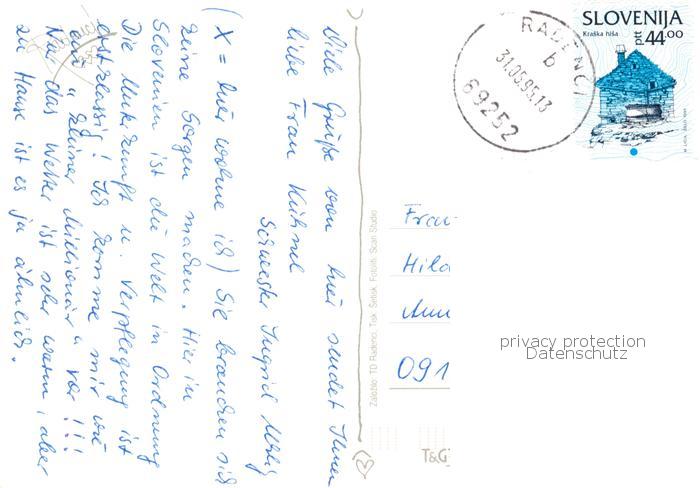 Viele Grüße von hier sendet Ihnen
liebe Frau Kühnel
Schwester Ingrid
(X = hier wohne ich) Sie brauchen sich
keine Sorgen machen. Hier in
Slovenien ist die Welt in Ordnung
Die Unterkunft u. Verpflegung ist
erstklassig! Ich komme mir wie
ein "kleiner Millionär" vor!!!
Nur das Wetter ist sehr warm, aber
zu Hause ist es ja ähnlich.
Založilo: TD Radenci, Tisk: Setisk, Fotoliti: Scan Studio
RADENCI
b
31.05.95.13
69252
SLOVENIJA
Kraška hiša
ptt 44.00
Frau
Hild
091
privacy protection
Datenschutz
T&G